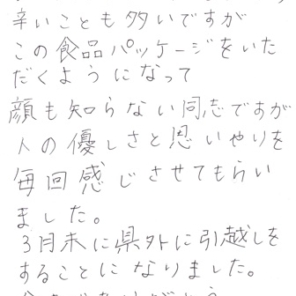 辛いことも多いですが
この食品パッケージをいた
だくようになって
顔も知らない同志ですが
人の優しさと思いやりを
毎回感じさせてもらい
ました。
3月末に県外に引越しを
することになりました。